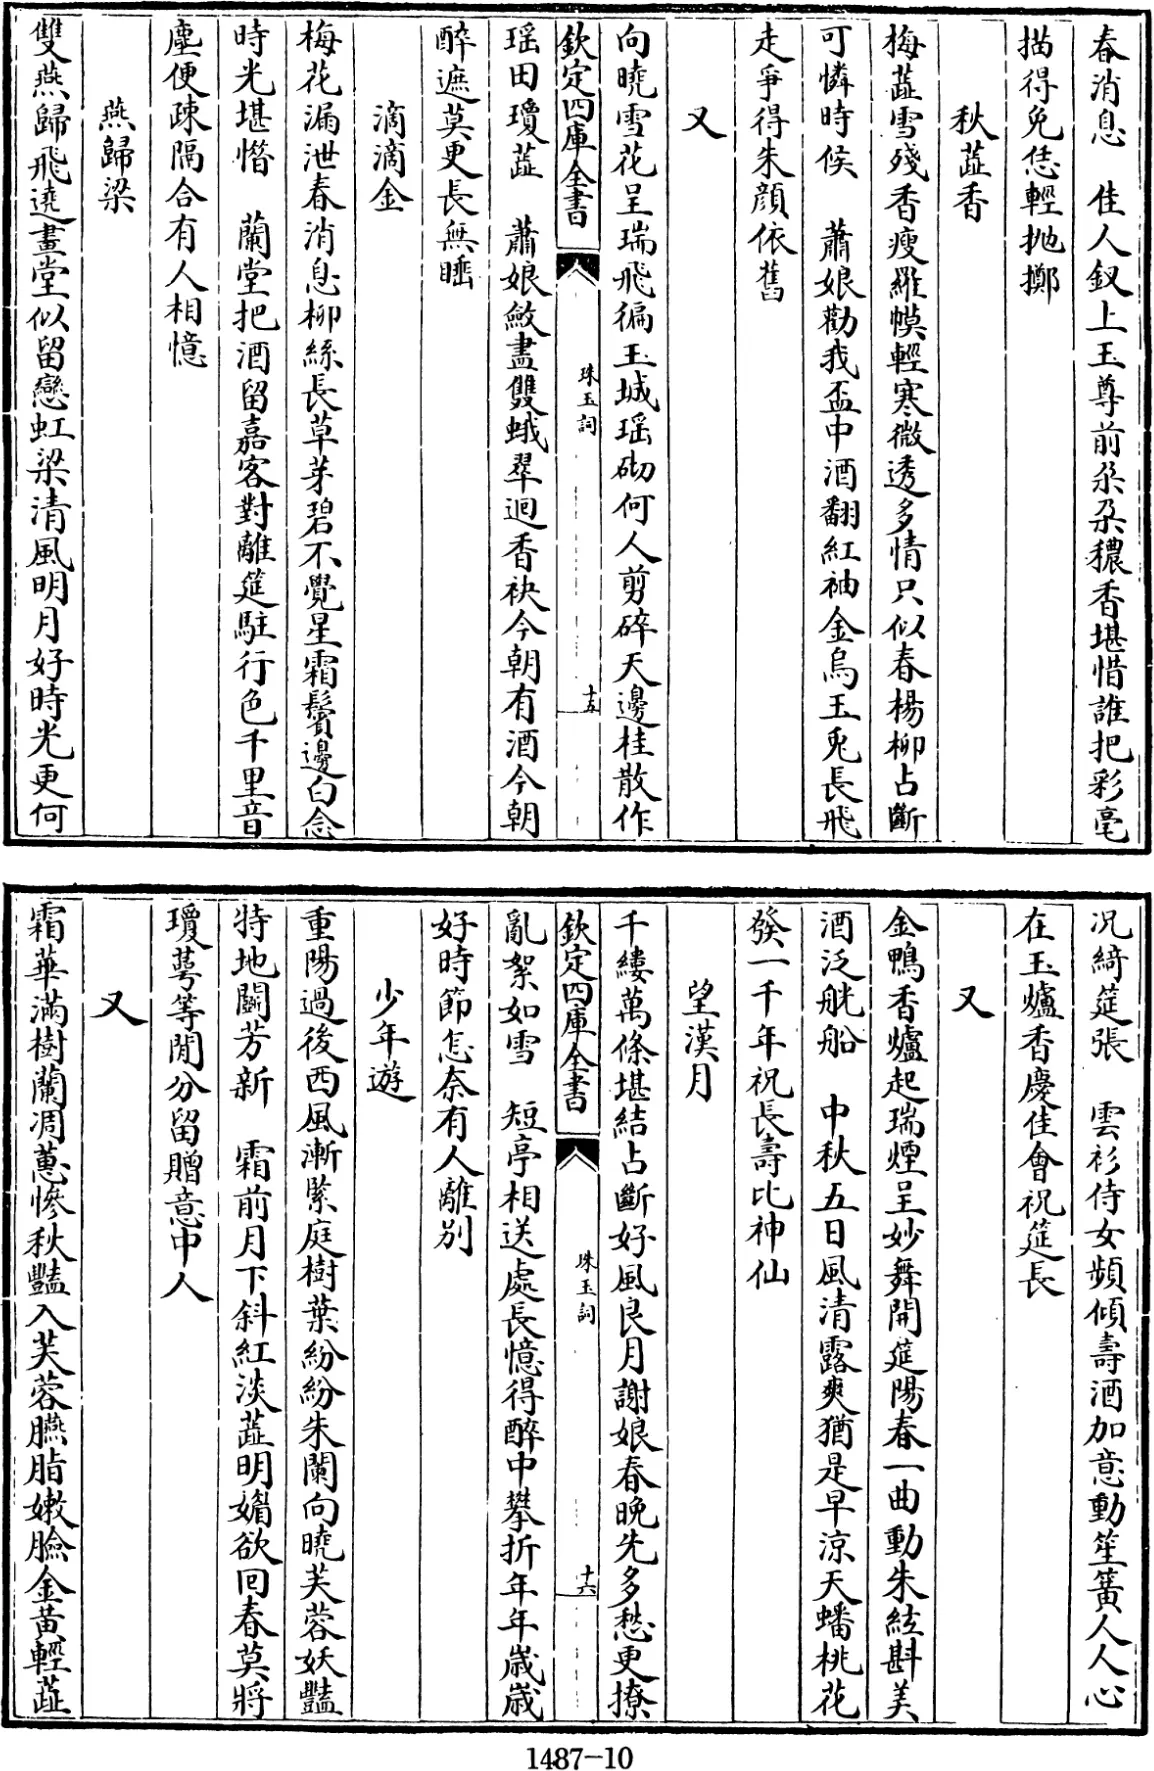 春消息　佳人釵上玉尊前朶朶穠香堪惜誰把彩毫
描得免恁輕抛擲
秋蕋香
梅蕋雪殘香瘦羅幙輕寒微透多情只似春楊柳占斷
可憐時候　蕭娘勸我盃中酒翻紅袖金烏玉兎長飛
走爭得朱顔依舊
又
向曉雪花呈瑞飛徧玉城瑶砌何人剪碎天邊桂散作
欽定四庫全書
珠玉詞
十五
瑶田瓊蕋　蕭娘斂盡雙蛾翠迴香袂今朝有酒今朝
醉遮莫更長無睡
滴滴金
梅花漏泄春消息柳絲長草芽碧不覺星霜鬢邊白念
時光堪惜　蘭堂把酒留嘉客對離筵駐行色千里音
塵便疎隔合有人相憶
燕歸梁
雙燕歸飛遶畫堂似留戀虹梁清風明月好時光更何
况綺筵張　雲衫侍女頻傾壽酒加意動笙簧人人心
在玉爐香慶佳會祝筵長
又
金鴨香爐起瑞煙呈妙舞開筵陽春一曲動朱絃斟美
酒泛觥船　中秋五日風清露爽猶是早凉天蟠桃花
發一千年祝長壽比神仙
望漢月
千縷萬條堪結占斷好風良月謝娘春晚先多愁更撩
欽定四庫全書
珠玉詞
十六
亂絮如雪　短亭相送處長憶得醉中攀折年年歲歲
好時節怎奈有人離别
少年遊
重陽過後西風漸緊庭樹葉紛紛朱闌向曉芙蓉妖豔
特地鬭芳新　霜前月下斜紅淡蕋明媚欲回春莫將
瓊蕚等閒分留贈意中人
又
霜華滿樹蘭凋蕙慘秋豔入芙蓉臙脂嫩臉金黄輕蕋
1487-10